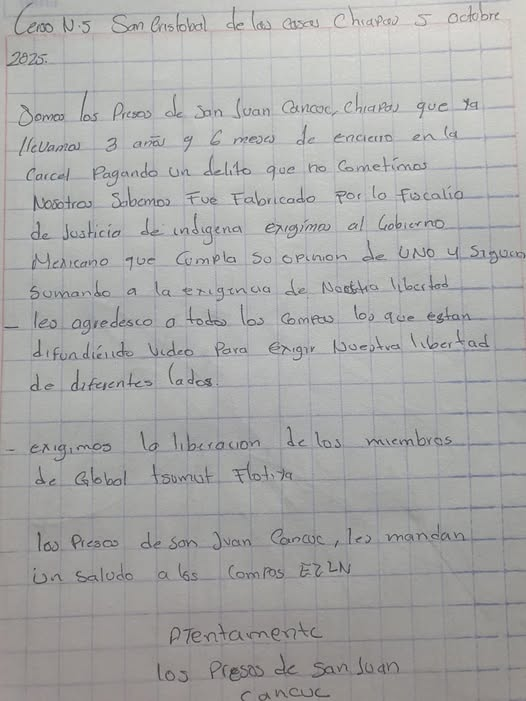 Cerso N.5 San Cristobal de las casas Chiapas 5 octubre
2025.
Somos los Presos de San Juan Cancuc, Chiapas que ya
llevamos 3 años y 6 meses de encierro en la
Carcel Pagando un delito que no Cometimos
Nosotros Sabemos Fue Fabricado Por lo Fiscalia
de Justicia de indigena exigimos al Gobierno
Mexicano que Cumpla so opinion de UNO y Siguen
Sumando a la exigencia de Noestra libertad
- les agredesco a todos los compas los que estan
difundiendo Video Para exigir Nuestra libertad
de diferentes lados.
- exigimos la liberacion de los miembros
de Global tsumut Flotiya
los Presos de san Juan Cancuc, les mandan
Un saludo a los Compas EZLN
ATentamente
los Presos de San Juan
Cancuc